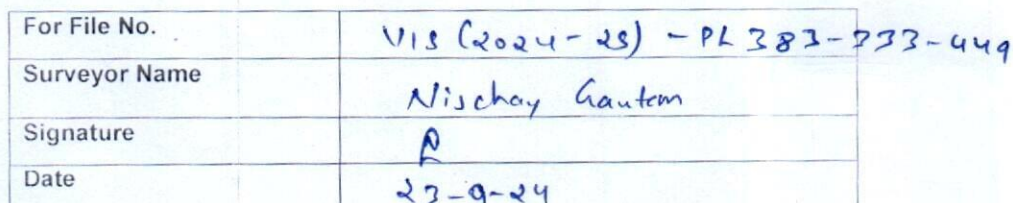 For File No. VIS (2024-25) - PL 383-333-449
Surveyor Name Nischay Gautam
Signature
Date 23-9-24